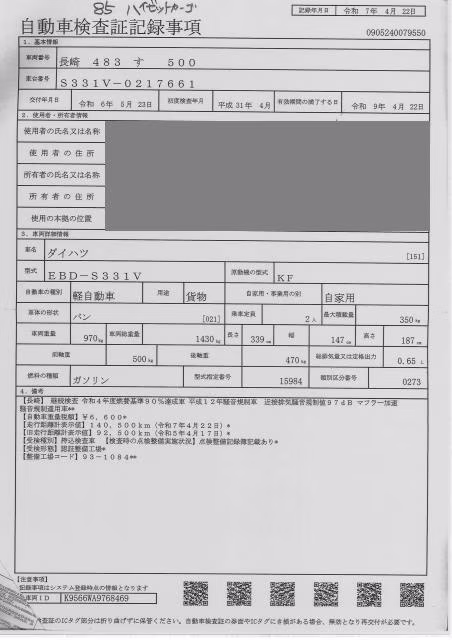 85 ハイゼットカーゴ
記録年月日 令和 7年 4月 22日
自動車検査証記録事項
0905240079550
1. 基本情報
車両番号 長崎 483 す 500
車台番号 S331V-0217661
交付年月日 令和 6年 5月 23日 初度検査年月 平成 31年 4月 有効期間の満了する日 令和 9年 4月 22日
2. 使用者・所有者情報
使用者の氏名又は名称
使用者の住所
所有者の氏名又は名称
所有者の住所
使用の本拠の位置
3. 車両詳細情報
車名 ダイハツ [151]
型式 EBD-S331V 原動機の型式 KF
自動車の種別 軽自動車 用途 貨物 自家用・事業用の別 自家用
車体の形状 バン [021] 乗車定員 2人 最大積載量 350kg
車両重量 970kg 車両総重量 1430kg 長さ 339cm 幅 147cm 高さ 187cm
前軸重 500kg 後軸重 470kg 総排気量又は定格出力 0.65L
燃料の種類 ガソリン 型式指定番号 15984 類別区分番号 0273
4. 備考
【長崎】 継続検査 令和4年度燃費基準90%達成車 平成12年騒音規制車 近接排気騒音規制値97dB マフラー加速
騒音規制適用車**
【自動車重量税額】¥6,600*
【走行距離計表示値】140,500km(令和7年4月22日)*
【旧走行距離計表示値】92,500km(令和5年4月17日)*
【受検種別】持込検査車 【検査時の点検整備実施状況】点検整備記録簿記載あり*
【受検形態】認証整備工場*
【整備工場コード】93-1084**
【注意事項】
記録事項はシステム登録時点の情報となります
車両ID K9566WA9768469
査証のICタグ部分は折り曲げずに保管ください。自動車検査証の券面やICタグに合損がある場合、無効となり再交付が必要です。